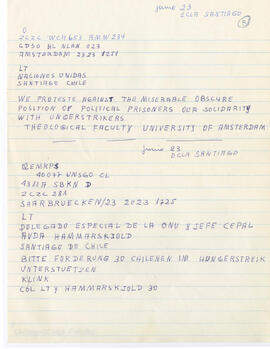 june 23
ECLA SANTIAGO
5
0
ZCZC WCH653 AMW234
CDSO HL NLAN 023
AMSTERDAM 23 23 1251
LT
NACIONES UNIDAS
SANTIAGO CHILE
WE PROTESTE AGAINST THE MISERABLE OBSCURE
POSITION OF POLITICAL PRISONERS OUR SOLIDARITY
WITH UNGERSTRIKERS
THEOLOGICAL FACULTY UNIVERSITY OF AMSTERDAM
june 23
ECLA SANTIAGO
40077 UNSGO CL
SBKN D
ZCZC 281
SAARBRUECKEN/23 2023 1725
LT
DELEGADO ESPECIAL DE LA ONU Y JEFE CEPAL
AVDA HAMMARSKJOLD
SANTIAGO DE CHILE
BITTE FORDERUNG 30 CHILENEN IM HUNGERSTREIK
UNTERSTUETZEN
KLINK
COL LT Y HAMMARSKJOLD 30